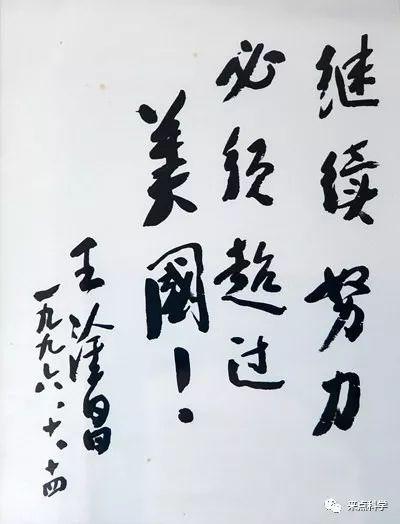 继续努力
必须超过
美國！
王淦昌
一九九六.十.十四
来点科学